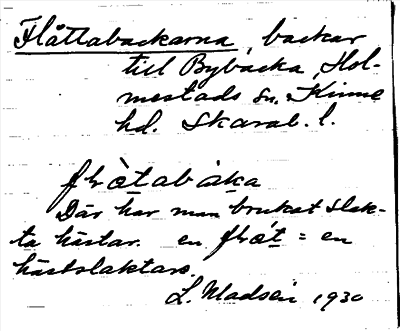 Flåttabackarna, backar
till Bybacka, Hol-
mestads sn. Kinne
hd. Skarab. l.
flåtabaka
Där har man brukat slak-
ta hästar. en flåt = en
hästslaktare.
L. Madsén 1930